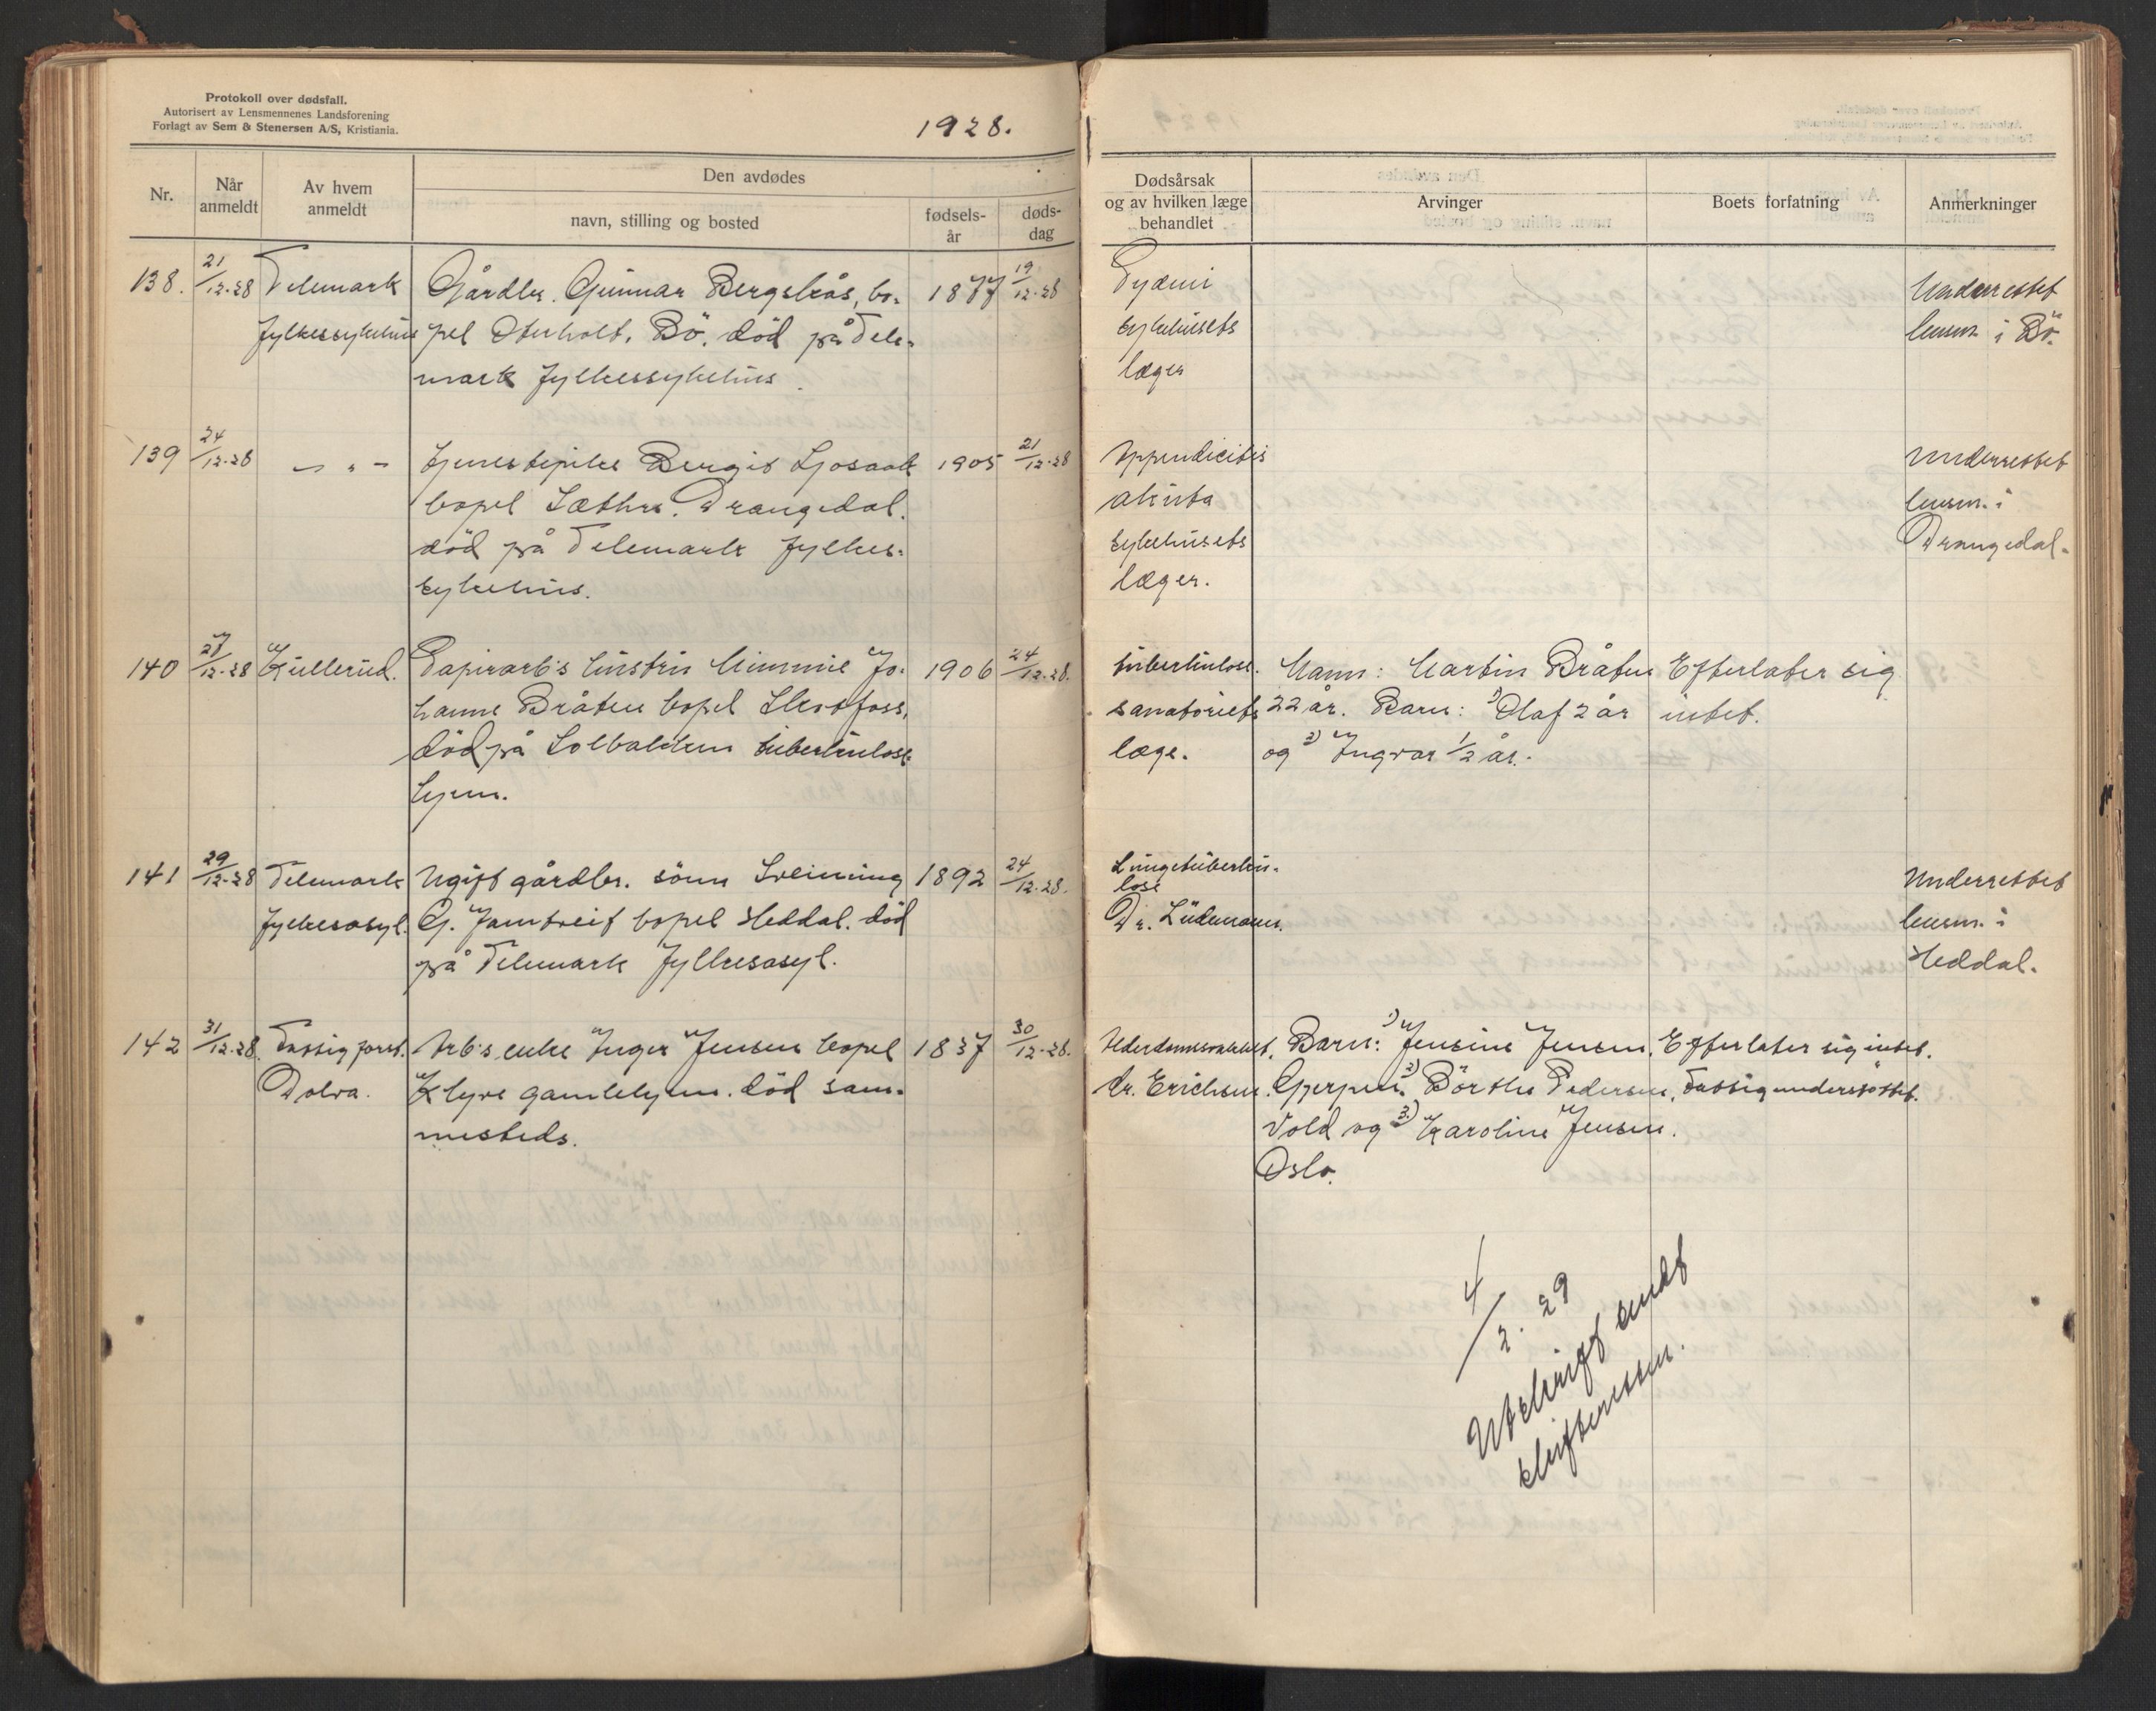 Protokoll over dødsfall.
Autorisert av Lensmennenes Landsforening
Forlagt av Sem & Stenersen A/S, Kristiania.
1928.
Nr.
Når anmeldt
Av hvem anmeldt
Den avdødes
navn, stilling og bosted
fødsels-år
døds-dag
Dødsårsak og av hvilken læge behandlet
Arvinger
Boets forfatning
Anmerkninger
138. 21/12-28 Telemark Gårdbr. Gunnar Bergslås, bo- 1877 19/12-28 Pyæmi Underrettet
fylkessykehus pel Oterholt, Bö. död på Tele- sykehusets lensm. i Bö.
mark fylkessykehus. læger
139 24/12-28 — " — Tjenestepike Bergit Ljosaak 1905 21/12-28 Appendicitis Underrettet
bopel Sæther. Drangedal. akuta lensm. i
död på Telemark fylkes- sykehusets Drangedal.
sykehus. læger.
140 27/12-28 Kullerud. Papirarb's hustru Mimmie Jo- 1906 24/12-28. tuberkulose. Mann: Martin Bråten Efterlater sig
hanne Bråten bopel Skotfoss, sanatoriets 22 år. Barn: 1) Olaf 2 år intet.
död på Solbakken tuberkulose- læge. og 2) Ingvar 1/2 år.
hjem.
141 29/12-28 Telemark Ugift gårdbr. sönn Sveinung 1892 24/12-28. Lungetuberku- Underrettet
lose
fylkesasyl. G. Jamtveit bopel Heddal. död Dr. Lüdemann. lensm. i
på Telemark fylkesasyl. Heddal.
142 31/12-28. Fattigforst. Arb's enke Inger Jensen bopel 1837 30/12-28. Alderdomssvakhet. Barn: 1) Jensine Jensen, Efterlater sig intet.
Dolva. Klyve gamlehjem. död sam- dr. Erichsen. Gjerpen. 2) Börthe Pedersen, Fattigunderstöttet.
mesteds. Vold og 3) Karoline Jensen.
Oslo.
4/2. 29
Utskrift sendt
skifteretten.